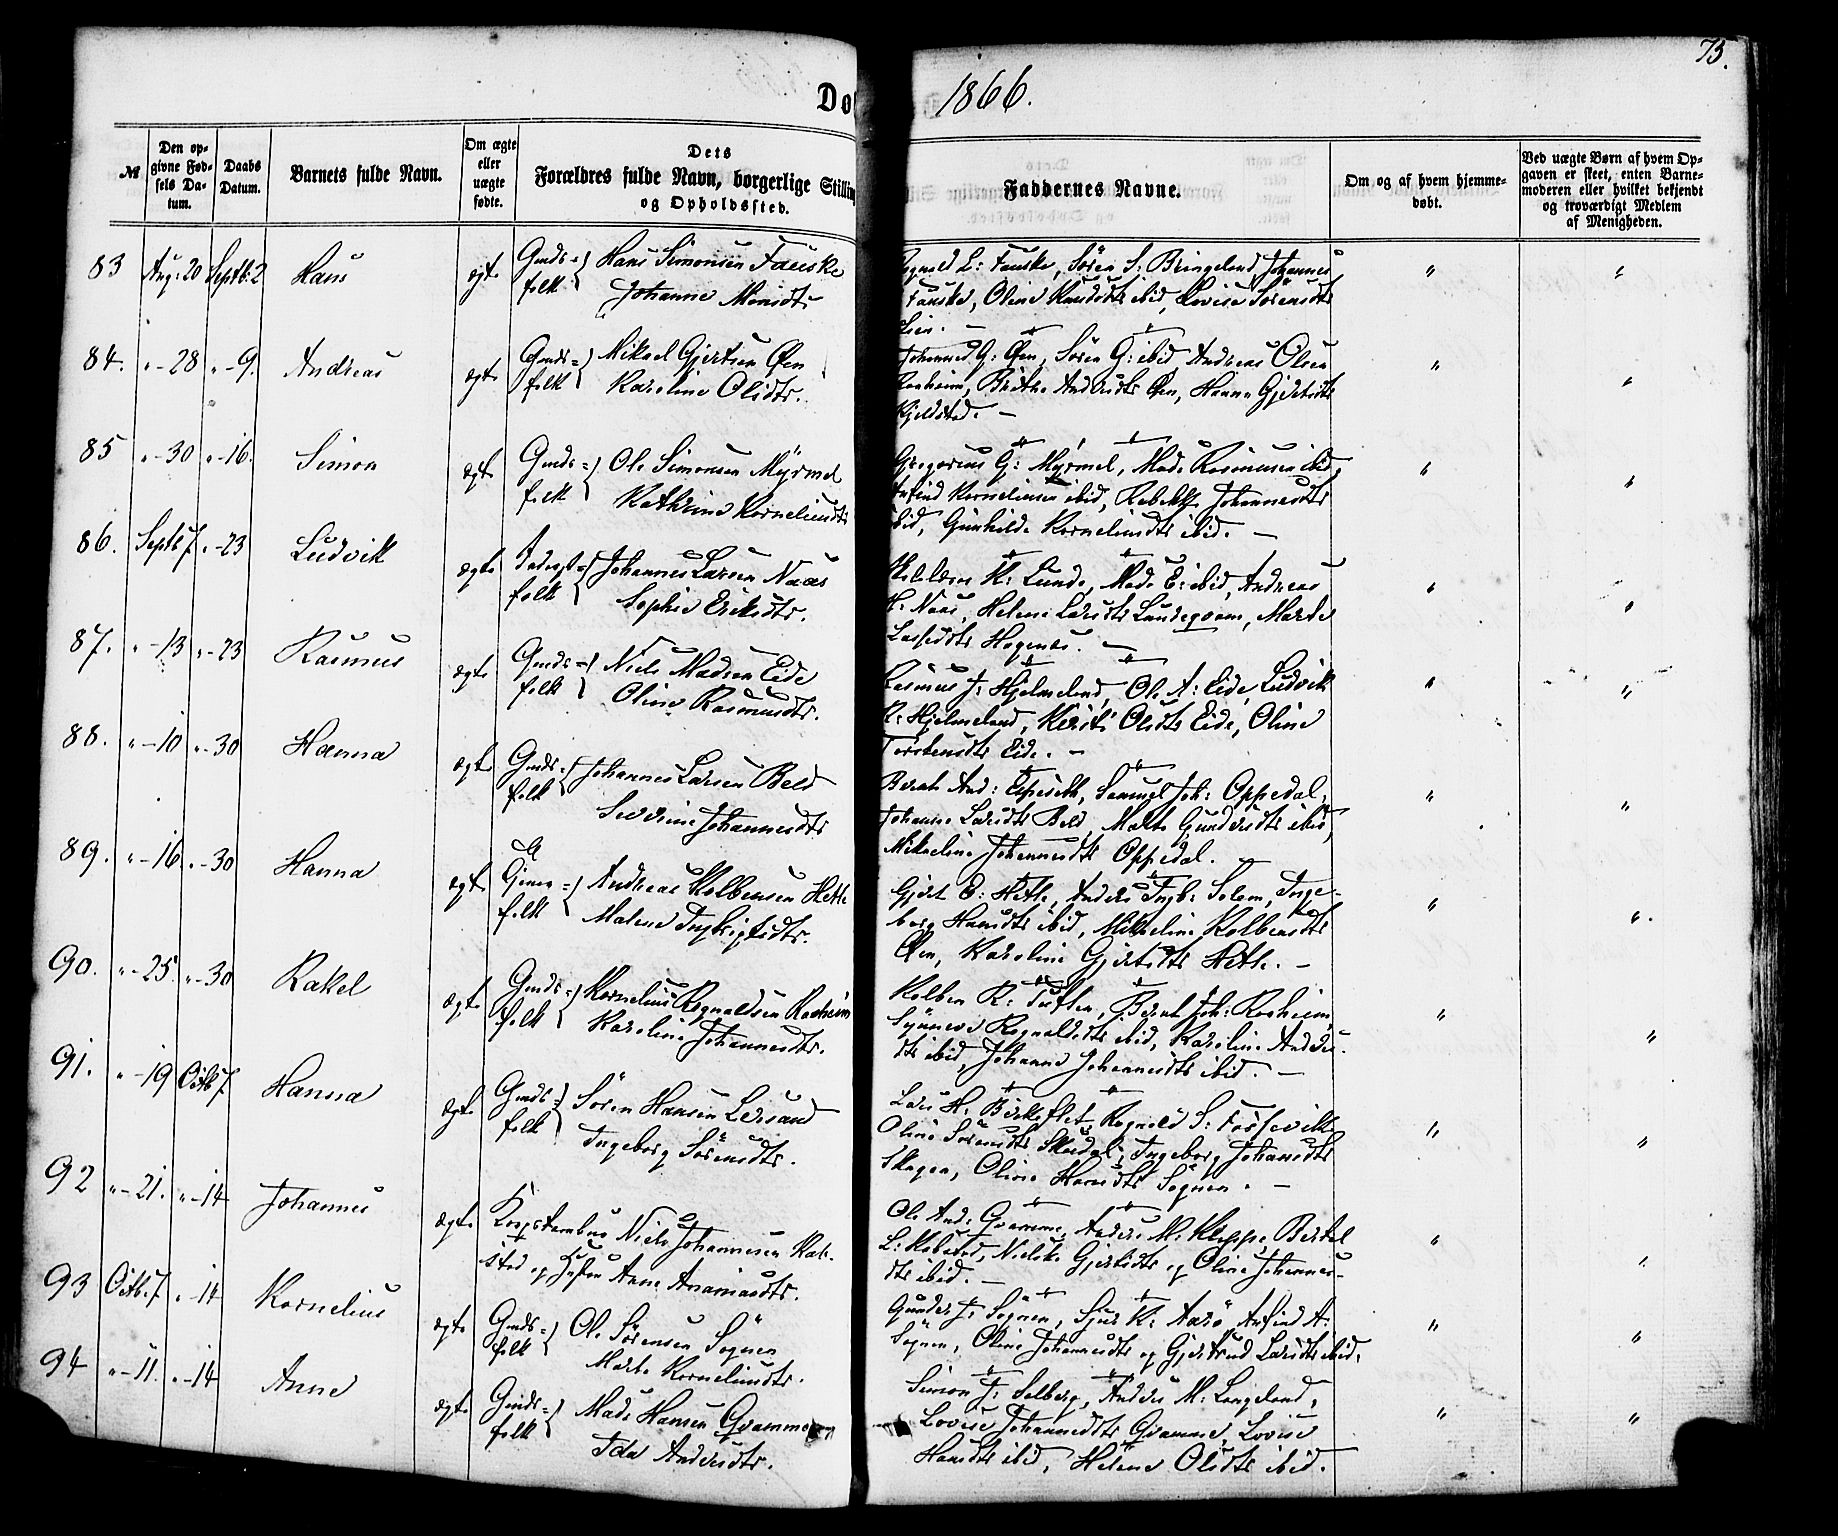 75.
Do
1866.
№
Den op-
givne Fød-
sels Da-
tum.
Daabs
Datum.
Barnets fulde Navn.
Om ægte
eller
uægte
fødte.
Dets
Forældres fulde Navn, borgerlige Stillin
og Opholdssted.
Faddernes Navne.
Om og af hvem hjemme-
døbt.
Ved uægte Børn af hvem Op-
gaven er skeet, enten Barne-
moderen eller hvilket bekjendt
og troværdigt Medlem
af Menigheden.
83 Aug: 20 Septb: 2 Hans ægte Gmds= Hans Simonsen Fauske
folk Johanne Monsdtr
Fauske, Søren S: Bringeland, Johannes
Fauske, Oline Knudsdtr ibid, Lovise Sørensdtr
Lien. —
84. " - 28 " - 9. Andreas ægte Gmds= Mikael Gjertsen Øen
folk Karoline Olsdtr.
Johannes G: Øen, Søren G: ibid, Andreas Olsen
Brithe Andersdtr Øen, Hanna Gjertsdtr
Kjelstad. —
85 " - 30 " - 16. Simon ægte Gmds= Ole Simonsen Myrmel
folk Kathrine Kornelius dtr
Gregorius G: Myrmel, Mads Rasmussen ibid,
Kornelius en ibid, Rebekka Johannesdtr
ibid, Gunhilde Korneliusdtr ibid. —
86. Septb 7. " - 23 Ludvik ægte Johannes Larsen Naas
folk Sophie Eriksdtr.
K: Lunde, Mads E: ibid, Andreas
H: Naas, Helene Larsdtr Marthe
Lassedtr —
87. " - 13 " - 23 Rasmus ægte Gmds= Niels Madsen Eide
folk Oline Rasmusdtr.
Rasmus J: Hjelmeland, Ole A: Eide, Ludvik
R: Hjelmeland, Kirsti Olsdtr Eide, Oline
Torstensdtr Eide. —
88. " - 10 " - 30 Hanna ægte Gmds= Johannes Larsen Beld
folk Severine Johannesdtr
Bernt And: Espeseth, Samuel Joh: Oppedal,
Johanne Larsdtr Beld, Malte Gundersdtr ibid,
Mikaeline Johannesdtr Oppedal.
89. " - 16 " - 30 Hanna ægte Gmds= Andreas Kolbensen Hetle
folk Malene Ingbrigtsdtr.
Gjert E: Hetle, Anders Ingb: Solem, Inge-
borg Hansdtr ibid, Mikkeline Kolbensdtr
Øen, Karoline Gjertsdtr Hetle. —
90. " - 25. " - 30 Rakel ægte Gmds= Kornelius Regnaldsen Rosheim
folk Karoline Johannesdtr.
Kolben R: Tuften, Bernt Joh: Rosheim,
Synneve Regnaldsdtr ibid, Karoline Anders-
dtr ibid, Johanne Johannesdtr ibid. —
91. " - 19 Octb 7. Hanna ægte Gmds= Søren Hansen Lersand
folk Ingeborg Sørensdtr.
Lars H: Birkeflet, Regnald S: Fossevik,
Oline Sørensdtr Skardal, Ingeborg Johansdtr
Skogen, Oline Hansdtr Søgnen. —
92 " - 21. " - 14 Johannes ægte Korpstambur Niels Johannesen Kob-
stad og Hustru Anne Ananiasdtr.
Ole And: Qvamme, Anders M: Kleppe, Bertel
L: Kobstad, Nielske Gjertsdtr og Oline Johannes-
dtr ibid. —
93 Octb: 7. " - 14 Kornelius ægte Gmds= Ole Sørensen Søgnen
folk Marthe Korneliusdtr.
Gunder J: Søgnen, Sjur K: Aarø, Anfind A:
Søgnen, Oline Johannesdtr og Gjertrud Larsdtr ibid.
94 " - 11. " - 14 Anne ægte Gmds= Mads Hansen Qvamme
folk Ida Andersdtr.
Simon J: Solberg, Anders M: Langeland,
Lovise Johannesdtr Qvamme, Lovise
Hansdtr ibid, Helene Olsdtr ibid.